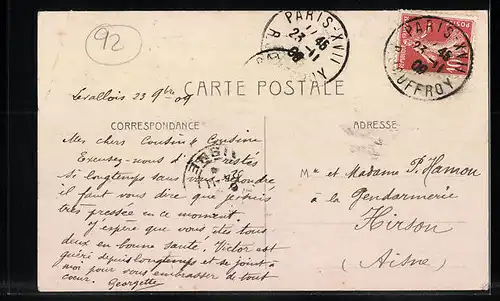 92
PARIS-XVII
17 45
23-11
09
R. JOUFFROY
PARIS-XVII
17 45
23-11
09
R. JOUFFROY
Levallois 23 9bre 09
CARTE POSTALE
CORRESPONDANCE
ADRESSE
Mes chers Cousin & Cousine
Excusez-nous d'être restés
si longtemps sans vous répondre
il faut vous dire que je suis
très pressée en ce moment.
J'espère que vous êtes tous
deux en bonne santé. Victor est
guéri depuis longtemps et se joint à
moi pour vous embrasser de tout
cœur. Georgette
Mr et Madame P. Hamon
à la Gendarmerie
Hirson
(Aisne)